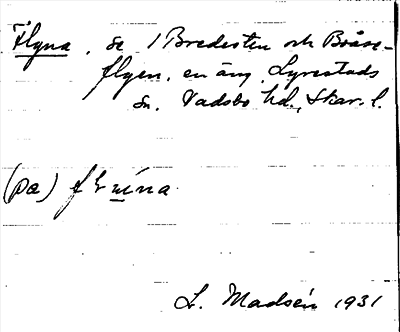 Flyna, se 1 Bredesten och Boåse-
flyen, en äng, Lyrestads
sn. Vadsbo hd., Skar. l.
(på)
L. Madsén 1931